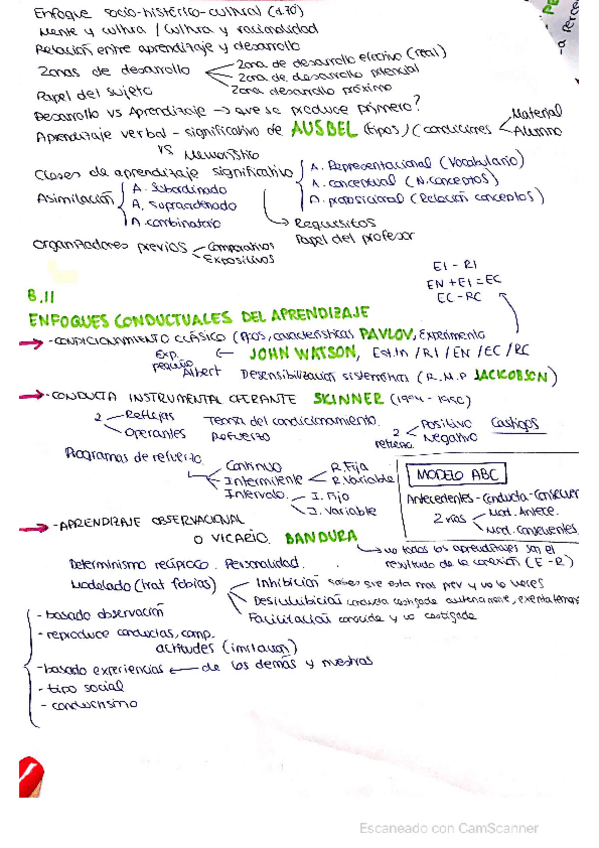 Enfoque socio-histórico-cultural (a.70)
Mente y cultura / Cultura y racionalidad
Relación entre aprendizaje y desarrollo
Zonas de desarrollo
Zona de desarrollo efectivo (real)
Zona de desarrollo potencial
Zona desarrollo próximo
Papel del sujeto
Desarrollo vs Aprendizaje → que se produce primero?
Aprendizaje verbal - significativo de AUSBEL (tipos) / Condiciones
Material
Alumno
vs Memorístico
Clases de aprendizaje significativo
A. Representacional (Vocabulario)
A. conceptual (N. conceptos)
A. proposicional (Relación conceptos)
Asimilación
A. Subordinado
A. Supraordenado
A. combinatorio
Requisitos
Papel del profesor
Organizadores previos
Comparativos
Expositivos
EI - RI
EN + EI = EC
EC - RC
B.11
ENFOQUES CONDUCTUALES DEL APRENDIZAJE
- CONDICIONAMIENTO CLÁSICO (tipos, características PAVLOV, Experimento
Exp. pequeño Albert
JOHN WATSON, Est.In / RI / EN / EC / RC
Desensibilización sistemática (R.M.P JACKOBSON)
- CONDUCTA INSTRUMENTAL OPERANTE SKINNER (1904 - 1990)
2
Reflejas
Operantes
Teoría del condicionamiento.
Refuerzo
2 refuerzo
Positivo
Negativo
Castigos
Programas de refuerzo.
Continuo
Intermitente
R. Fija
R. Variable
Intervalo.
I. Fijo
I. Variable
MODELO ABC
Antecedentes - Conducta - Consecuen
2 vías
Mod. Antece.
Mod. Consecuentes
- APRENDIZAJE OBSERVACIONAL
O VICARIO. BANDURA
no todos los aprendizajes son el
resultado de la conexión (E - R)
Determinismo recíproco. Personalidad.
Modelado (trat fobias)
Inhibición sabes que esta mal prev y no lo haces
Desinhibición conducta castigada
Facilitación conocida y no castigada
- basado observación
- reproduce conductas, comp.
actitudes (imitación)
- basado experiencias ← de los demás y nuestras
- tipo social
- conductismo
Escaneado con CamScanner